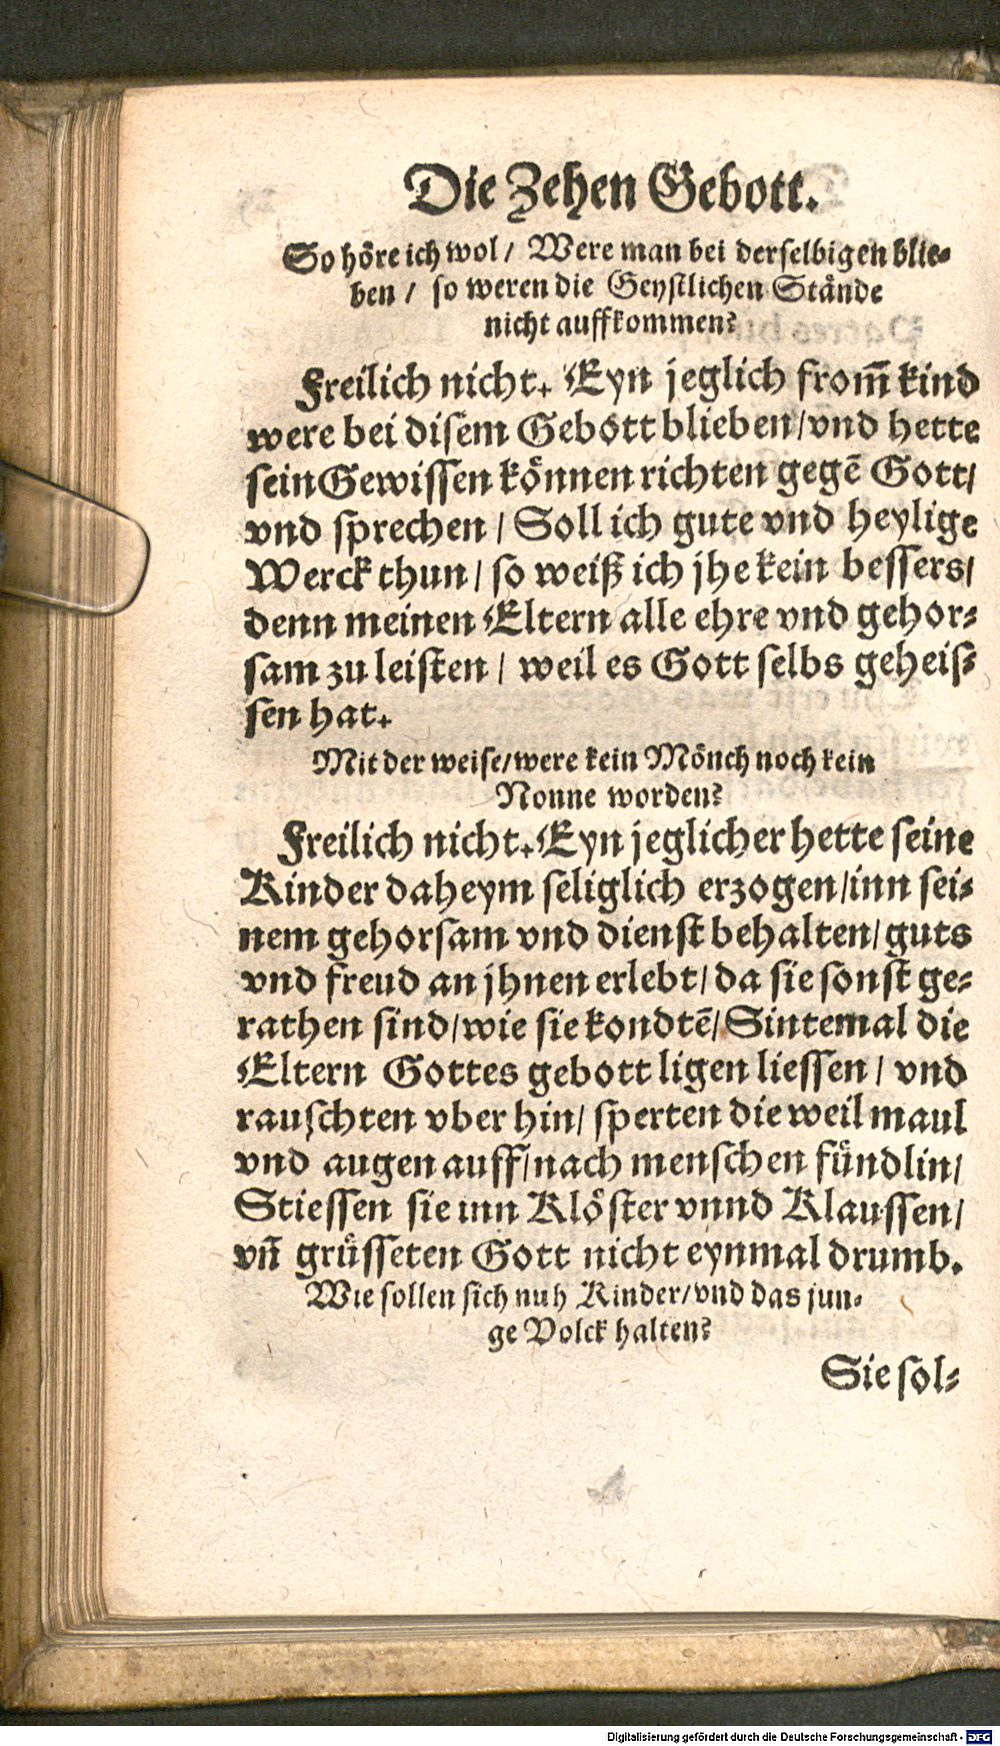 Die Zehen Gebott.
So höre ich wol / Were man bei derselbigen blie-
ben / so weren die Geystlichen Stände
nicht auffkommen?
Freilich nicht. Eyn jeglich from̄ kind
were bei disem Gebott blieben / vnd hette
sein Gewissen können richten gegē Gott /
vnd sprechen / Soll ich gute vnd heylige
Werck thun / so weiß ich jhe kein bessers /
denn meinen Eltern alle ehre vnd gehor-
sam zu leisten / weil es Gott selbs geheis-
sen hat.
Mit der weise / were kein Mönch noch kein
Nonne worden?
Freilich nicht. Eyn jeglicher hette seine
Kinder daheym seliglich erzogen / inn sei-
nem gehorsam vnd dienst behalten / guts
vnd freud an jhnen erlebt / da sie sonst ge-
rathen sind / wie sie kondtē / Sintemal die
Eltern Gottes gebott ligen liessen / vnd
rauschten vber hin / sperten die weil maul
vnd augen auff / nach menschen fündlin /
Stiessen sie inn Klöster vnnd Klaussen /
vn̄ grüsseten Gott nicht eynmal drumb.
Wie sollen sich nuh Kinder / vnd das jun-
ge Volck halten?
Sie sol-
Digitalisierung gefördert durch die Deutsche Forschungsgemeinschaft - DFG